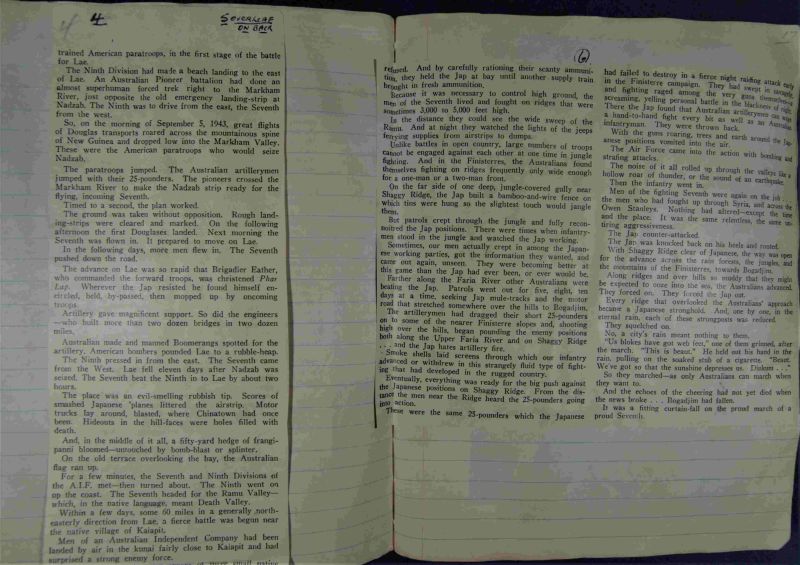 4
4
SOVERLEAF
ON BACK
trained American paratroops, in the first stage of the battle
for Lae.
The Ninth Division had made a beach landing to the east
of Lae. An Australian Pioneer battalion had done an
almost superhuman forced trek right to the Markham
River, just opposite the old emergency landing-strip at
Nadzab. The Ninth was to drive from the east, the Seventh
from the west.
So, on the morning of September 5, 1943, great flights
of Douglas transports roared across the mountainous spine
of New Guinea and dropped low into the Markham Valley.
These were the American paratroops who would seize
Nadzab.
The paratroops jumped. The Australian artillerymen
jumped with their 25-pounders. The pioneers crossed the
Markham River to make the Nadzab strip ready for the
flying, incoming Seventh.
Timed to a second, the plan worked.
The ground was taken without opposition. Rough land-
ing-strips were cleared and marked. On the following
afternoon the first Douglases landed. Next morning the
Seventh was flown in. It prepared to move on Lae.
In the following days, more men flew in. The Seventh
pushed down the road.
The advance on Lae was so rapid that Brigadier Eather,
who commanded the forward troops, was christened Phar
Lap. Wherever the Jap resisted he found himself en-
circled, held, by-passed, then mopped up by oncoming
troops.
Artillery gave magnificent support. So did the engineers
—who built more than two dozen bridges in two dozen
miles.
Australian made and manned Boomerangs spotted for the
artillery. American bombers pounded Lae to a rubble-heap.
The Ninth pressed in from the east. The Seventh came
from the West. Lae fell eleven days after Nadzab was
seized. The Seventh beat the Ninth in to Lae by about two
hours.
The place was an evil-smelling rubbish tip. Scores of
smashed Japanese 'planes littered the airstrip. Motor
trucks lay around, blasted, where Chinatown had once
been. Hideouts in the hill-faces were holes filled with
death.
And, in the middle of it all, a fifty-yard hedge of frangi-
panni bloomed—untouched by bomb-blast or splinter.
On the old terrace overlooking the bay, the Australian
flag ran up.
For a few minutes, the Seventh and Ninth Divisions of
the A.I.F. met—then turned about. The Ninth went on
up the coast. The Seventh headed for the Ramu Valley—
which, in the native language, meant Death Valley.
Within a few days, some 60 miles in a generally north-
easterly direction from Lae, a fierce battle was begun near
the native village of Kaiapit.
Men of an Australian Independent Company had been
landed by air in the kunai fairly close to Kaiapit and had
surprised a strong enemy force.
6
refused. And by carefully rationing their scanty ammuni-
tion, they held the Jap at bay until another supply train
brought in fresh ammunition.
Because it was necessary to control high ground, the
men of the Seventh lived and fought on ridges that were
sometimes 3,000 to 5,000 feet high.
In the distance they could see the wide sweep of the
Ramu. And at night they watched the lights of the jeeps
ferrying supplies from airstrips to dumps.
Unlike battles in open country, large numbers of troops
cannot be engaged against each other at one time in jungle
fighting. And in the Finisterres, the Australians found
themselves fighting on ridges frequently only wide enough
for a one-man or a two-man front.
On the far side of one deep, jungle-covered gully near
Shaggy Ridge, the Jap built a bamboo-and-wire fence on
which tins were hung as the slightest touch would jangle
them.
But patrols crept through the jungle and fully recon-
noitred the Jap positions. There were times when infantry-
men stood in the jungle and watched the Jap working.
Sometimes, our men actually crept in among the Japan-
ese working parties, got the information they wanted, and
came out again, unseen. They were becoming better at
this game than the Jap had ever been, or ever would be.
Farther along the Faria River other Australians were
beating the Jap. Patrols went out for five, eight, ten
days at a time, seeking Jap mule-tracks and the motor
road that stretched somewhere over the hills to Bogadjim.
The artillerymen had dragged their short 25-pounders
on to some of the nearer Finisterre slopes and, shooting
high over the hills, began pounding the enemy positions
both along the Upper Faria River and on Shaggy Ridge
. . . and the Jap hates artillery fire.
Smoke shells laid screens through which our infantry
advanced or withdrew in this strangely fluid type of fight-
ing that had developed in the rugged country.
Eventually, everything was ready for the big push against
the Japanese positions on Shaggy Ridge. From the dis-
tance the men near the Ridge heard the 25-pounders going
into action.
These were the same 25-pounders which the Japanese
had failed to destroy in a fierce night raiding attack early
in the Finisterre campaign. They had swept in
and fighting raged among the very guns themselves—a
screaming, yelling personal battle in the blackness of night.
There the Jap found that Australian artillerymen can wage
a hand-to-hand fight every bit as well as an Australian
infantryman. They were thrown back.
With the guns roaring, trees and earth around the Jap-
anese positions vomited into the air.
The Air Force came into the action with bombing and
strafing attacks.
The noise of it all rolled up through the valleys like a
hollow roar of thunder, or the sound of an earthquake.
Then the infantry went in.
Men of the fighting Seventh were again on the job
the men who had fought up through Syria, and across the
Owen Stanleys. Nothing had altered—except the time
and the place. It was the same relentless, the same un-
tiring aggressiveness.
The Jap counter-attacked.
The Jap was knocked back on his heels and routed.
With Shaggy Ridge clear of Japanese, the way was open
for the advance across the rain forests, the jungles, and
the mountains of the Finisterres, towards Bogadjim.
Along ridges and over hills so muddy that they might
be expected to ooze into the sea, the Australians advanced.
They forced on. They forced the Jap out.
Every ridge that overlooked the Australians' approach
became a Japanese stronghold. And, one by one, in the
eternal rain, each of these strongposts was reduced.
They squelched on.
No, a city's rain meant nothing to them.
"Us blokes have got web feet," one of them grinned, after
the march. "This is beaut." He held out his hand in the
rain, pulling on the soaked stub of a cigarette. "Beaut.
We've got so that the sunshine depresses us. Dinkum . . ."
So they marched—as only Australians can march when
they want to.
And the echoes of the cheering had not yet died when
the news broke . . . Bogadjim had fallen.
It was a fitting curtain-fall on the proud march of a
proud Seventh.